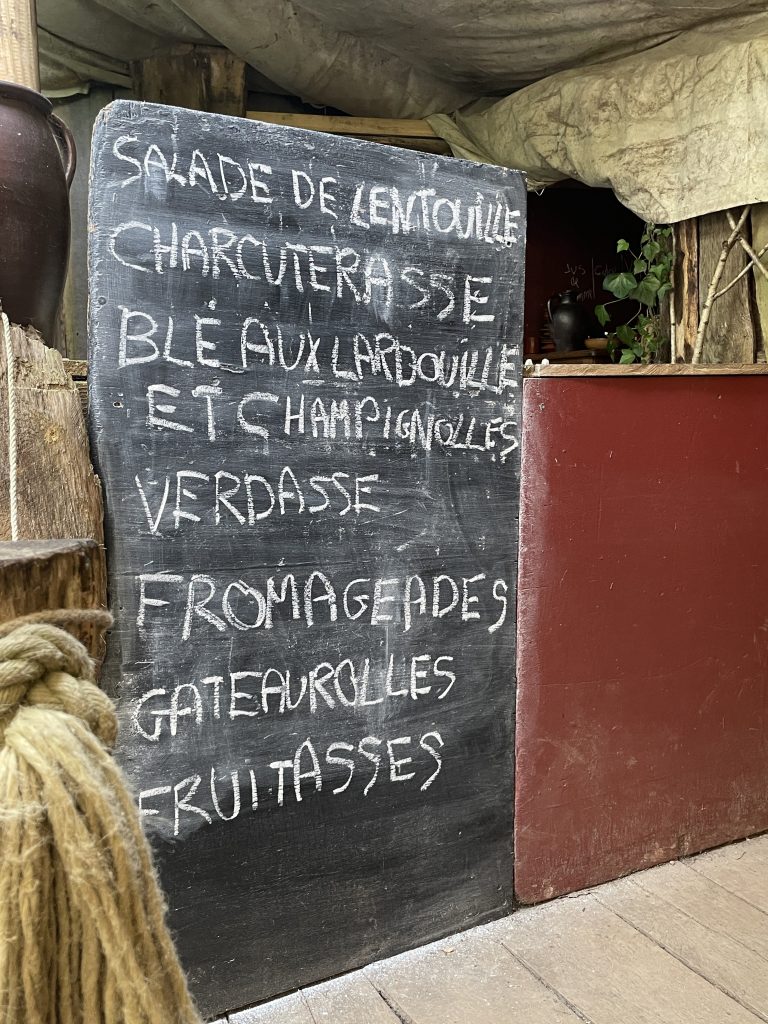 SALADE DE LENTOUILLE
CHARCUTERASSE
BLÉ AUX LARDOUILLE
ET CHAMPIGNOLLES
VERDASSE
FROMAGEADES
GATEAUROLLES
FRUITASSES
JUS